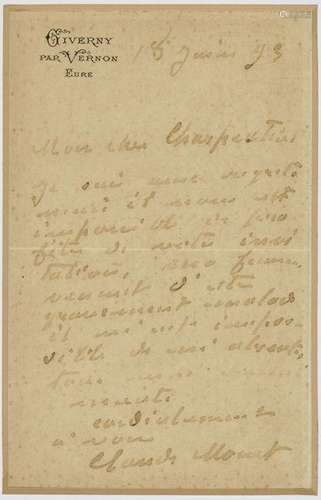 GIVERNY
PAR VERNON
EURE
15 juin 93
Mon cher Charpentier
Je suis
il nous est
impossible de pro
fiter de votre invi
tation, ma femme
venant d'être
gravement malade
il m'est impos
sible de m'absent
cordialement
à vous
Claude Monet